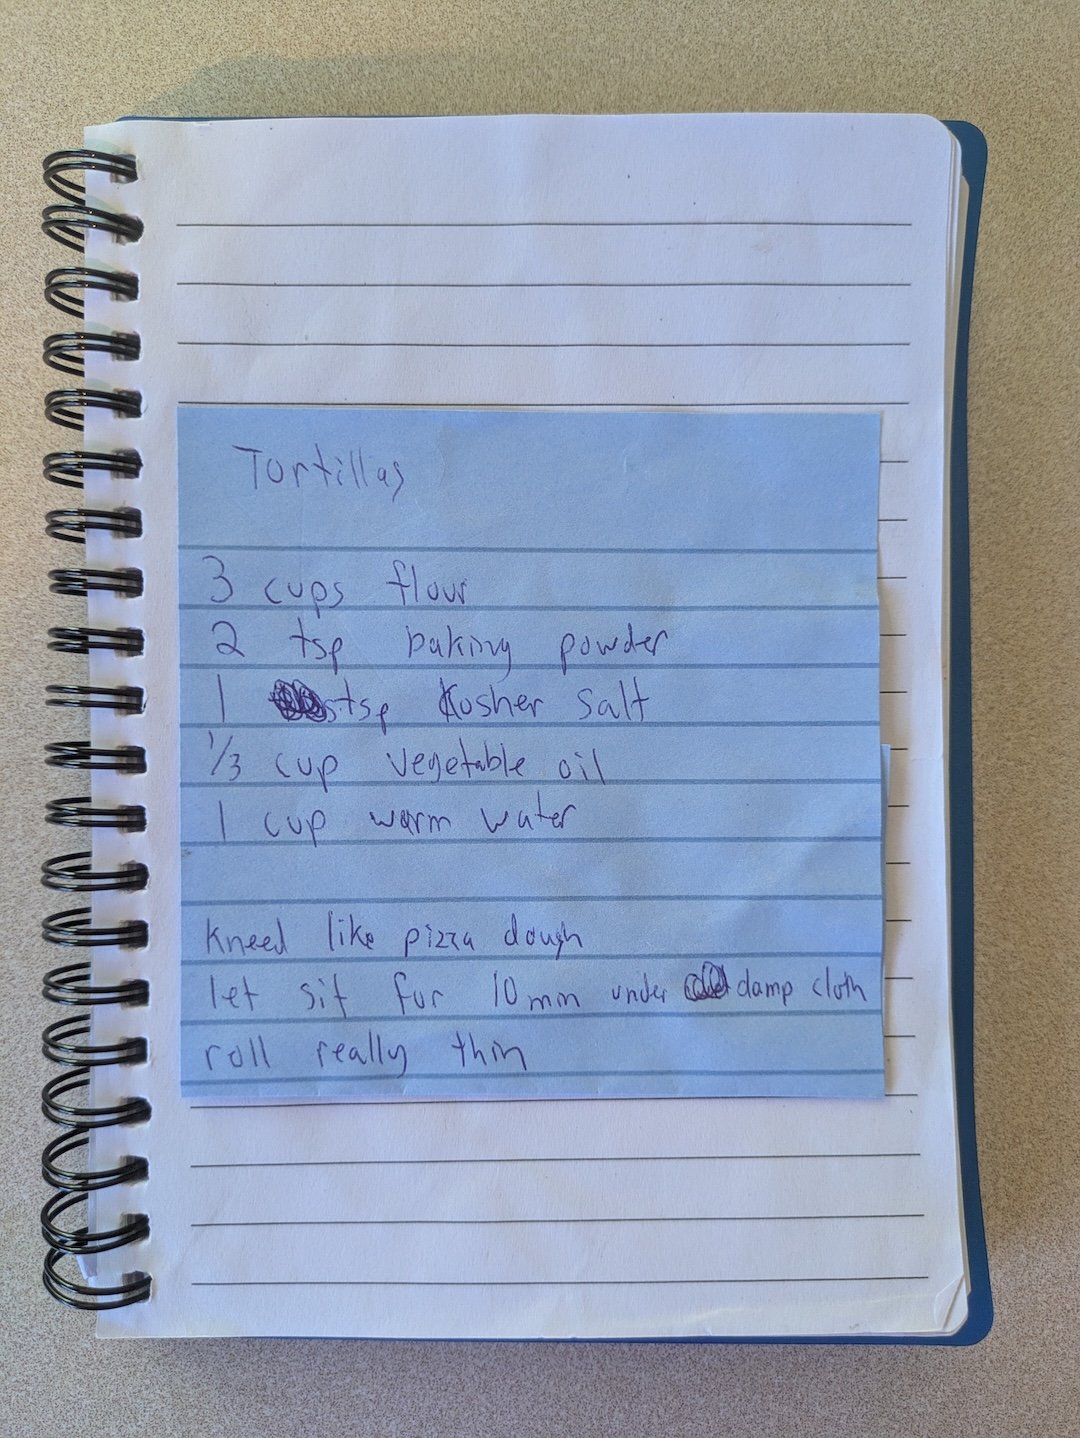 Tortillas
3 cups flour
2 tsp baking powder
1 tsp Kosher salt
1/3 cup vegetable oil
1 cup warm water
kneed like pizza dough
let sit for 10 min under damp cloth
roll really thin